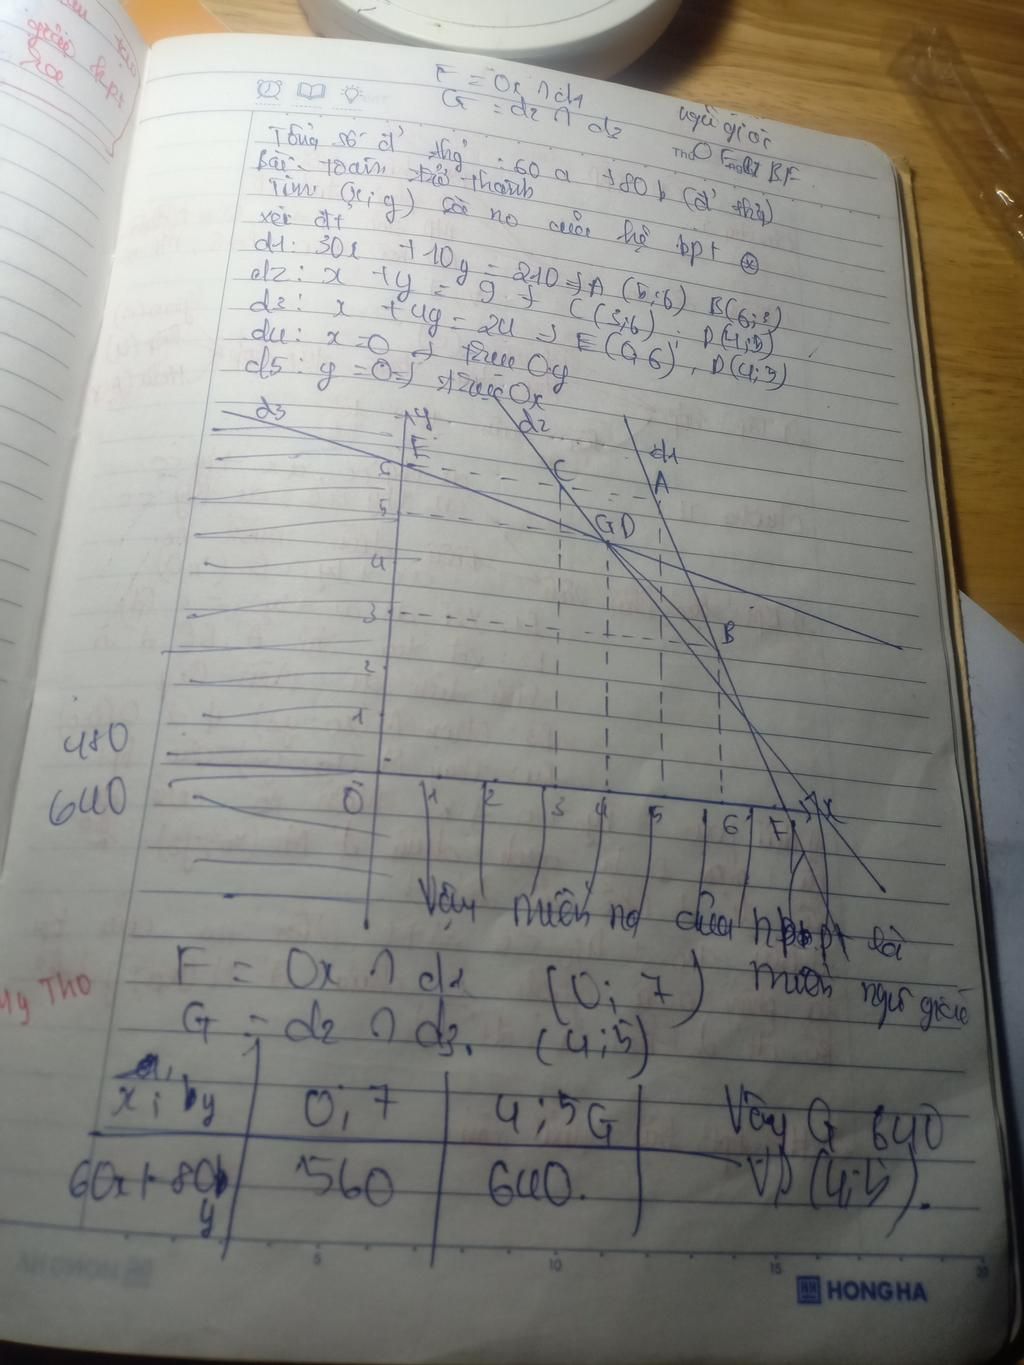 F = Ox ∩ d1
G = d2 ∩ d3
ngũ giác
Tho
BF
Tổng số đ' thg : 60a + 80b (đ' thg)
Bài toán trở thành
Tìm (x; y) là no của hệ bpt ⊛
xét đt
d1: 30x + 10y = 210 → A (5;6) B(6;3)
d2: x + y = 9 → C(3;6); D(4;5)
d3: x + 4y = 24 → E(0;6), D(4;5)
d4: x = 0 → trục Oy
d5: y = 0 → trục Ox
d3 y d2 d1
6 E C A
5 G D
4
3 B
2
1
480
640
O 1 2 3 4 5 6 F x
Vậy miền no của hbpt là
miền ngũ giác
F = Ox ∩ d1 (0; 7)
G = d2 ∩ d3. (4;5)
My Tho
x; y 0; 7 4; 5G Vậy G 640
60x + 80y 560 640. VD (4;5).
5 10 15 20
HONG HA